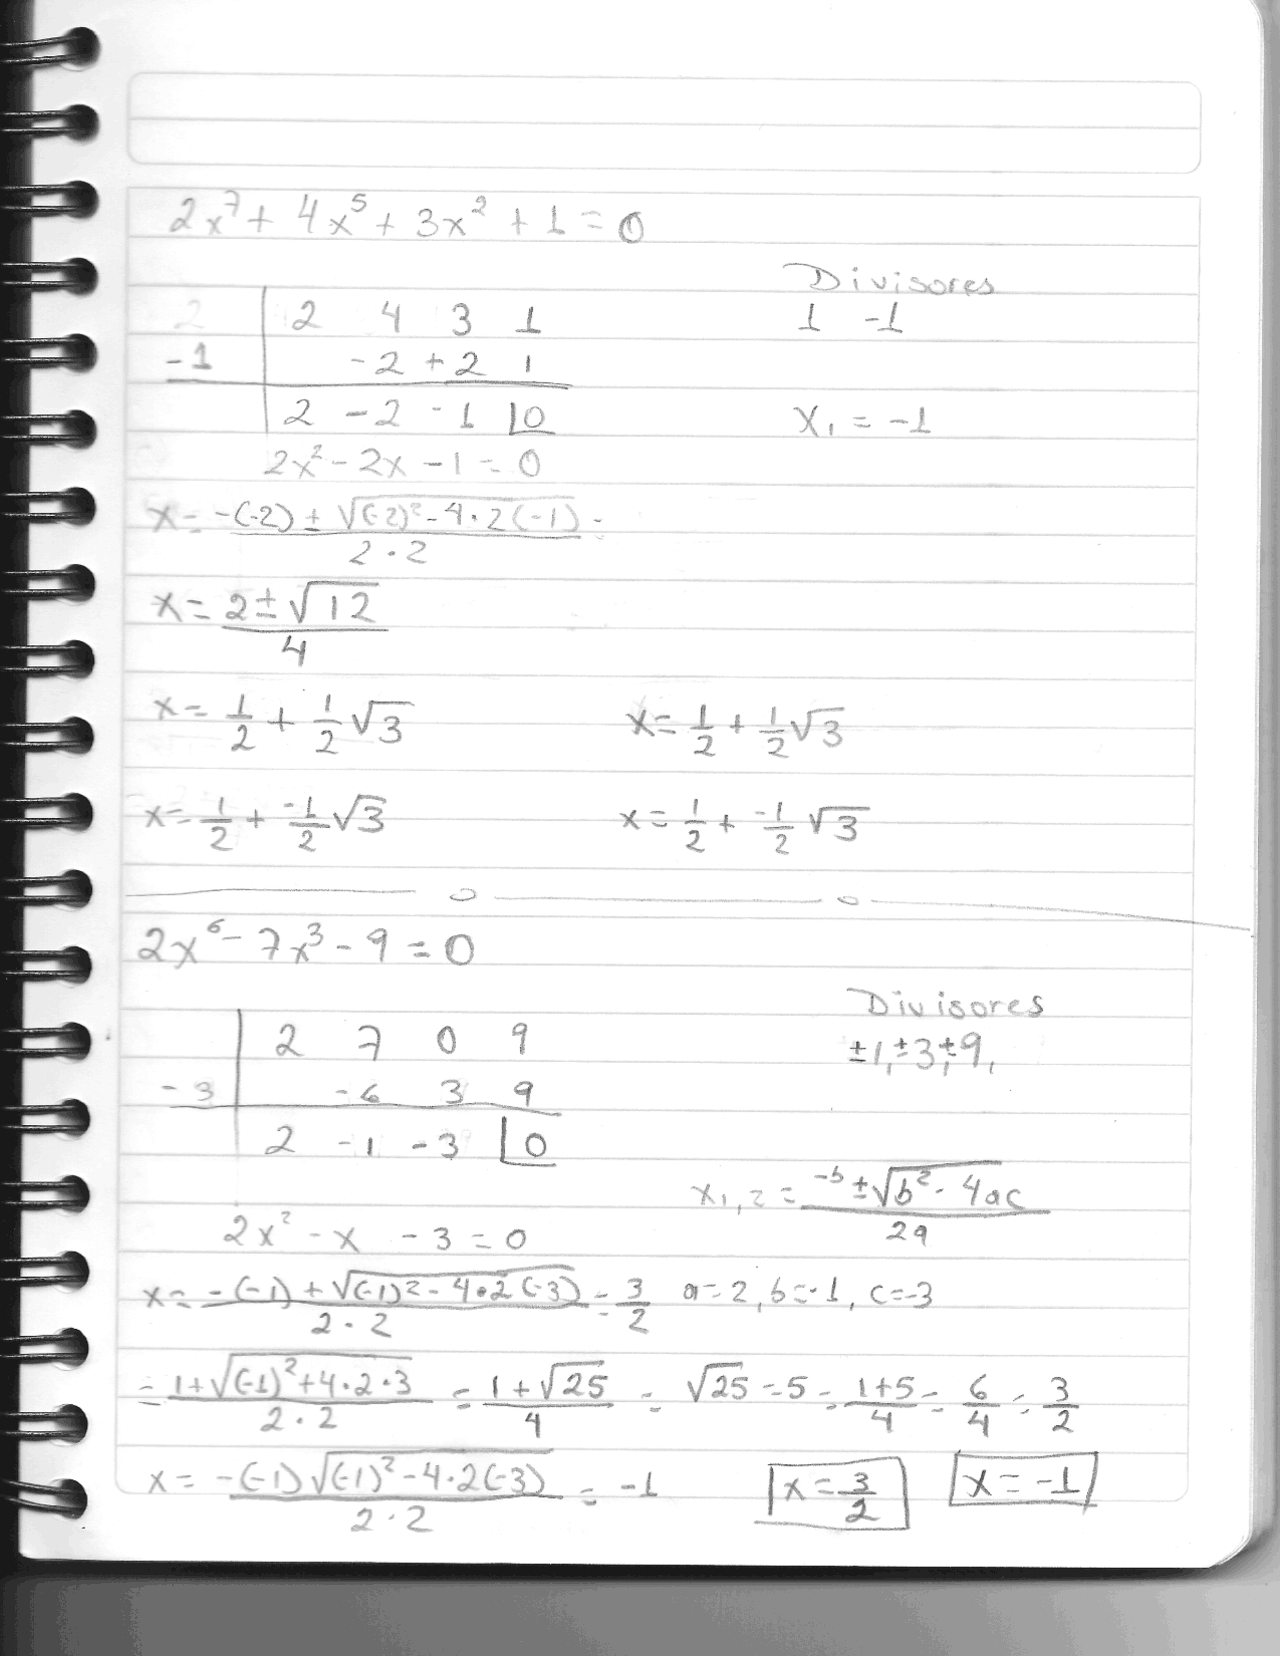 2x⁷ + 4x⁵ + 3x² + 1 = 0
Divisores
2 | 2 4 3 1
1 -1
-1 | -2 +2 1
2 -2 -1 |0
x₁ = -1
2x² - 2x - 1 = 0
x = -(-2) ± √(-2)² - 4·2(-1) =
2·2
x = 2 ± √12
4
x = 1/2 + 1/2 √3 x = 1/2 + 1/2 √3
x = 1/2 + -1/2 √3 x = 1/2 + -1/2 √3
2x⁶ - 7x³ - 9 = 0
Divisores
2 7 0 9
±1, ±3, ±9,
-3 | -6 3 9
2 -1 -3 |0
x₁,₂ = -b ± √b² - 4ac
2a
2x² - x - 3 = 0
x = -(-1) + √(-1)² - 4·2(-3) = 3/2 a = 2, b = -1, c = -3
2·2
= 1 + √(-1)² + 4·2·3 = 1 + √25 = √25 = 5 = 1+5 = 6 = 3
2·2 4 4 4 2
x = -(-1) √(-1)² - 4·2(-3) = -1 x = 3/2 x = -1
2·2